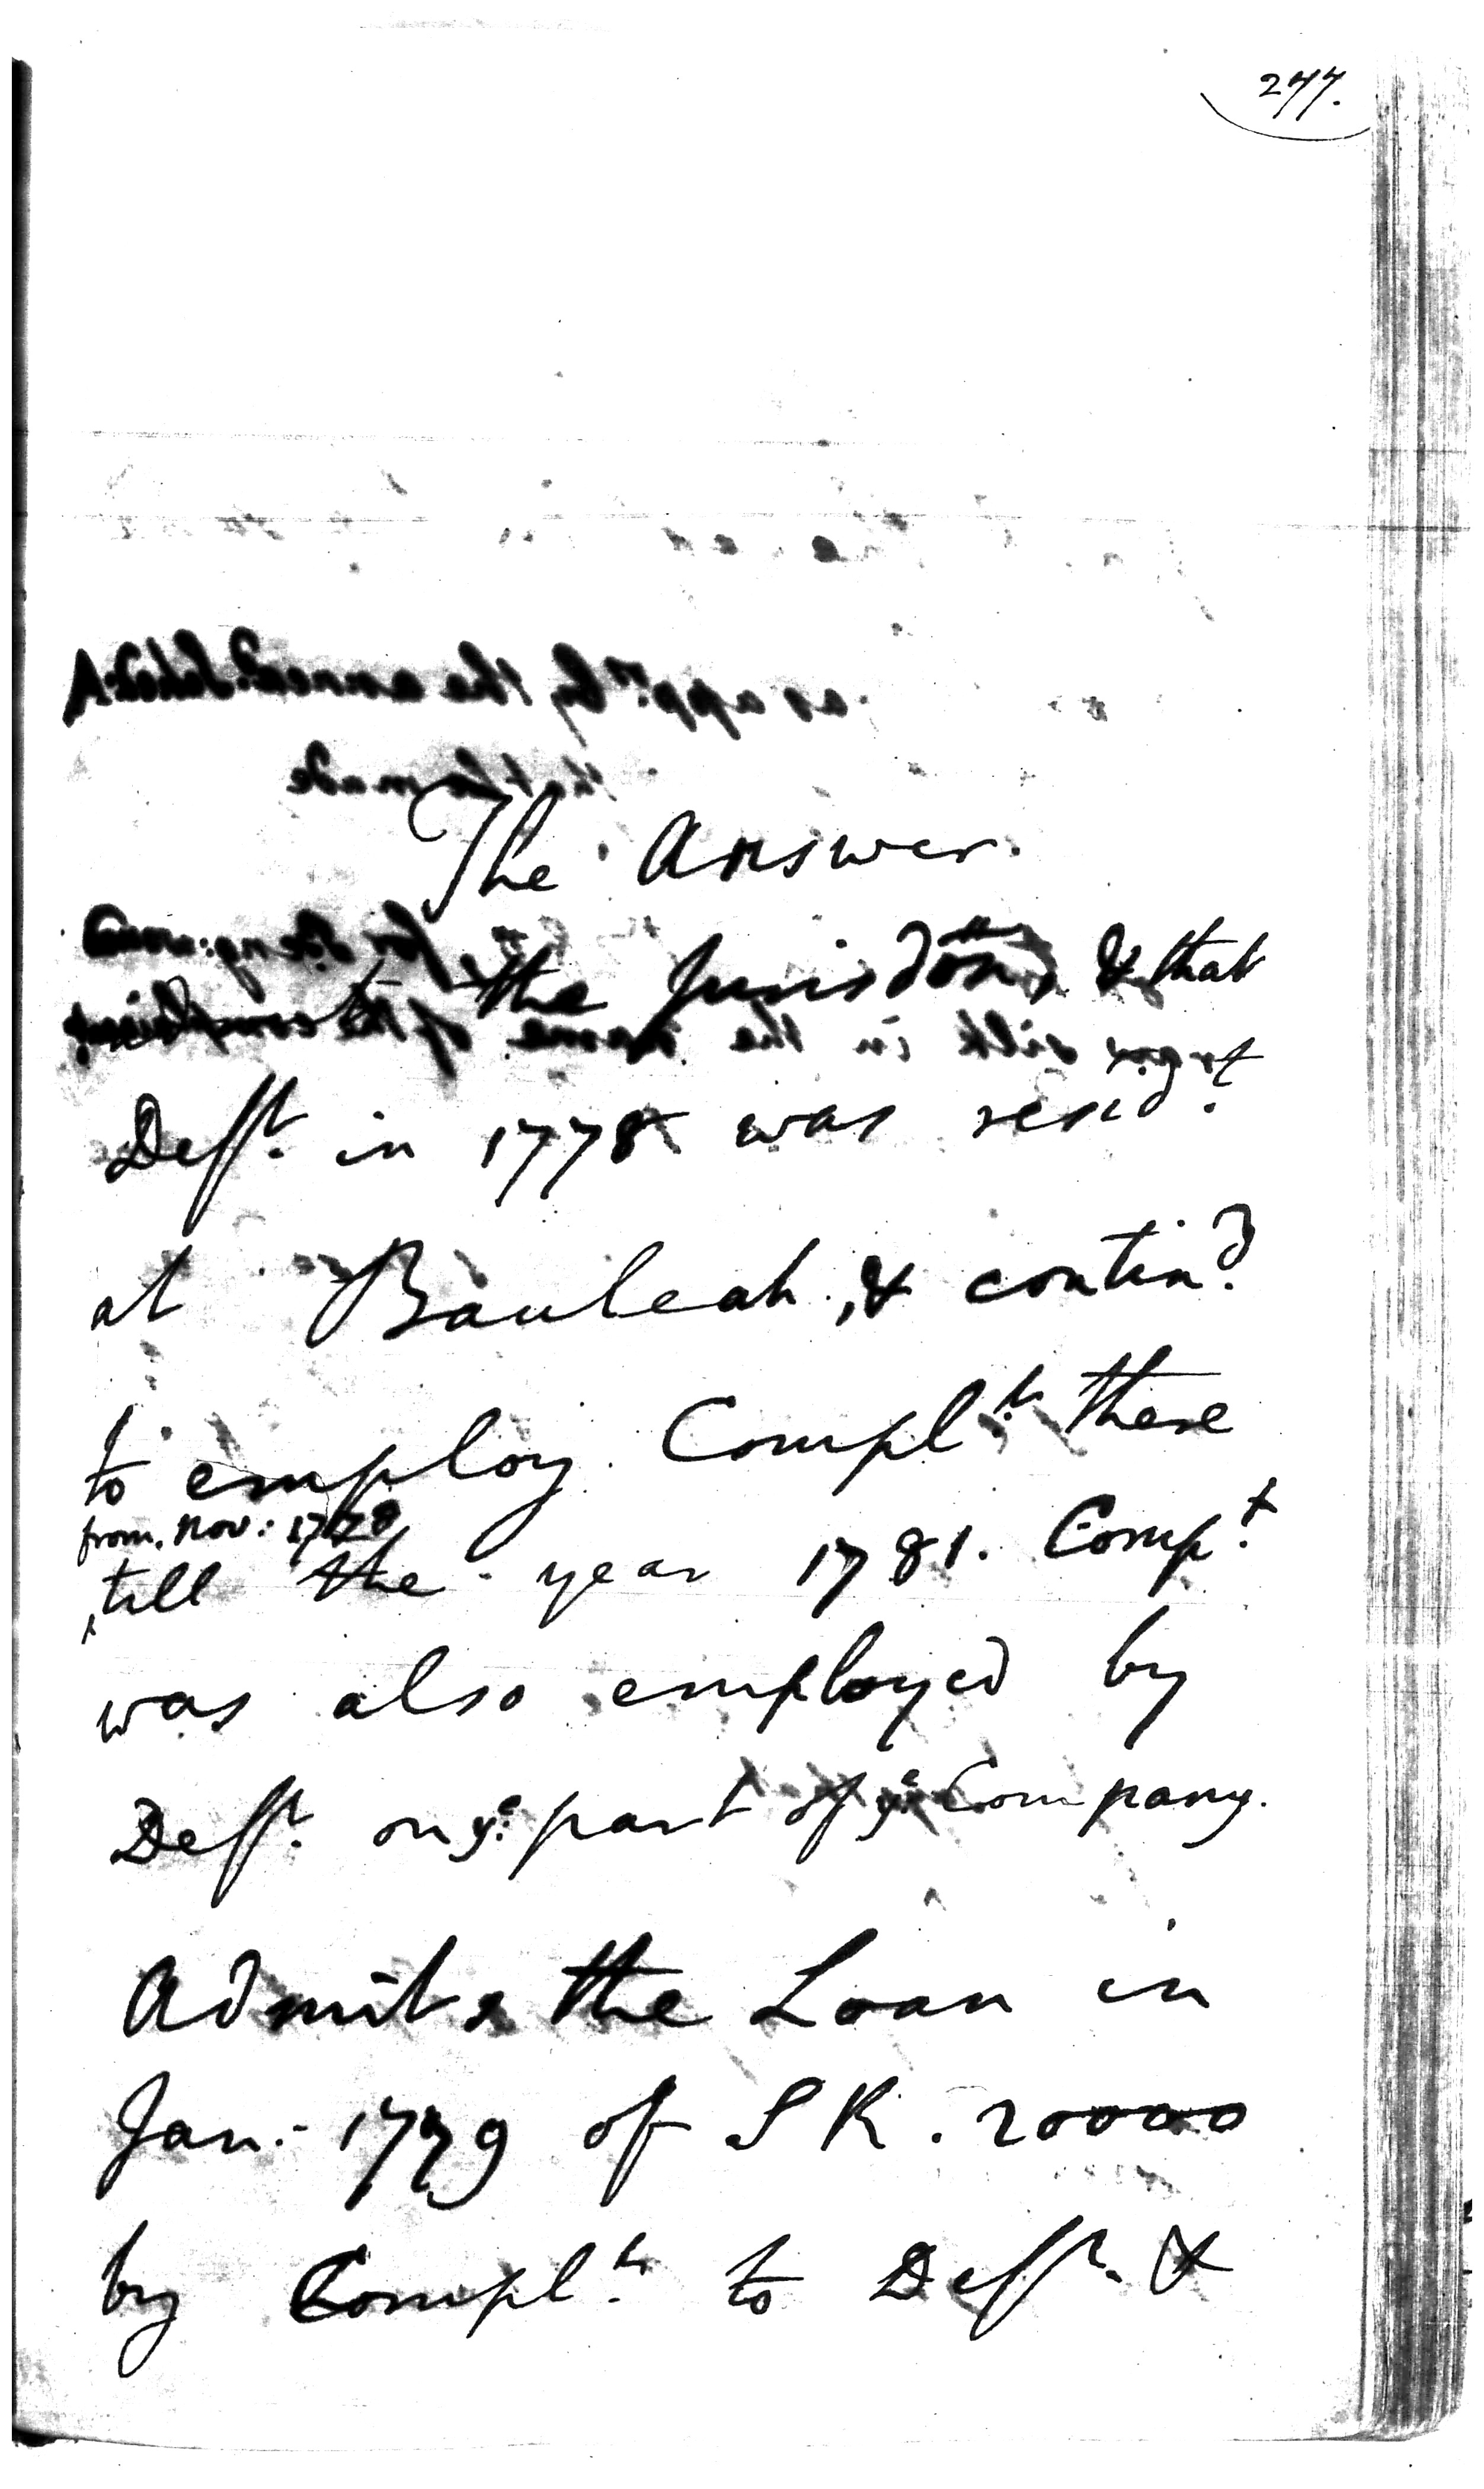 277.
The Answer.
the Jurisdōn, & that
Defft. in 1778 was residt.
at Bauleah, & contind.
to employ Complt. there
from Nov: 1778
till the year 1781. Compt.
was also employed by
Defft. on ye. part of ye. Company.
Admits the Loan in
Jan:- 1779 of S R. 20000
by Complt. to Defft. &